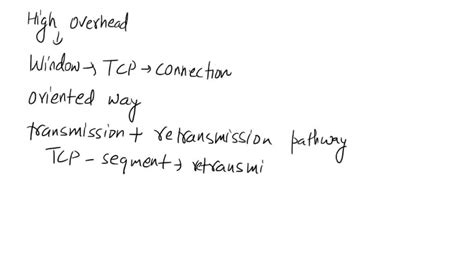 High overhead
↓
Window → TCP → connection
oriented way
transmission + retransmission pathway
TCP - segment → retransmi